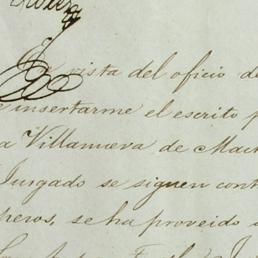 En vista del oficio de
e insertarme el escrito p
a Villanueva de Mach
Juzgado se siguen cont
peros, se ha proveido